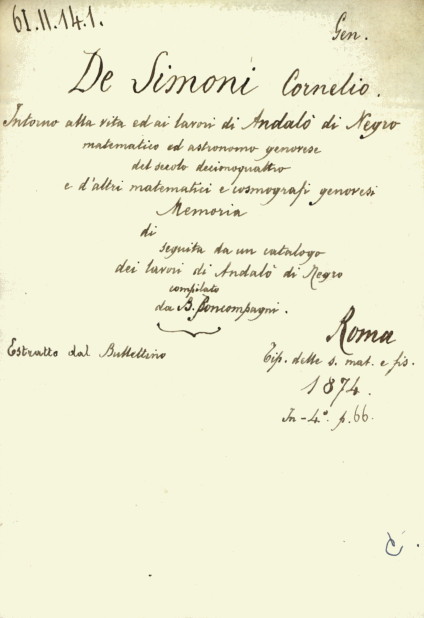 61.11.14.1.
Gen.
De Simoni Cornelio.
Intorno alla vita ed ai lavori di Andalò di Negro
matematico ed astronomo genovese
del secolo decimoquattro
e d'altri matematici e cosmografi genovesi
Memoria
di
seguita da un catalogo
dei lavori di Andalò di Negro
compilato
da B. Boncompagni.
Estratto dal Bullettino
Roma
Tip. delle s. mat. e fis.
1874.
In-4.° p. 66.